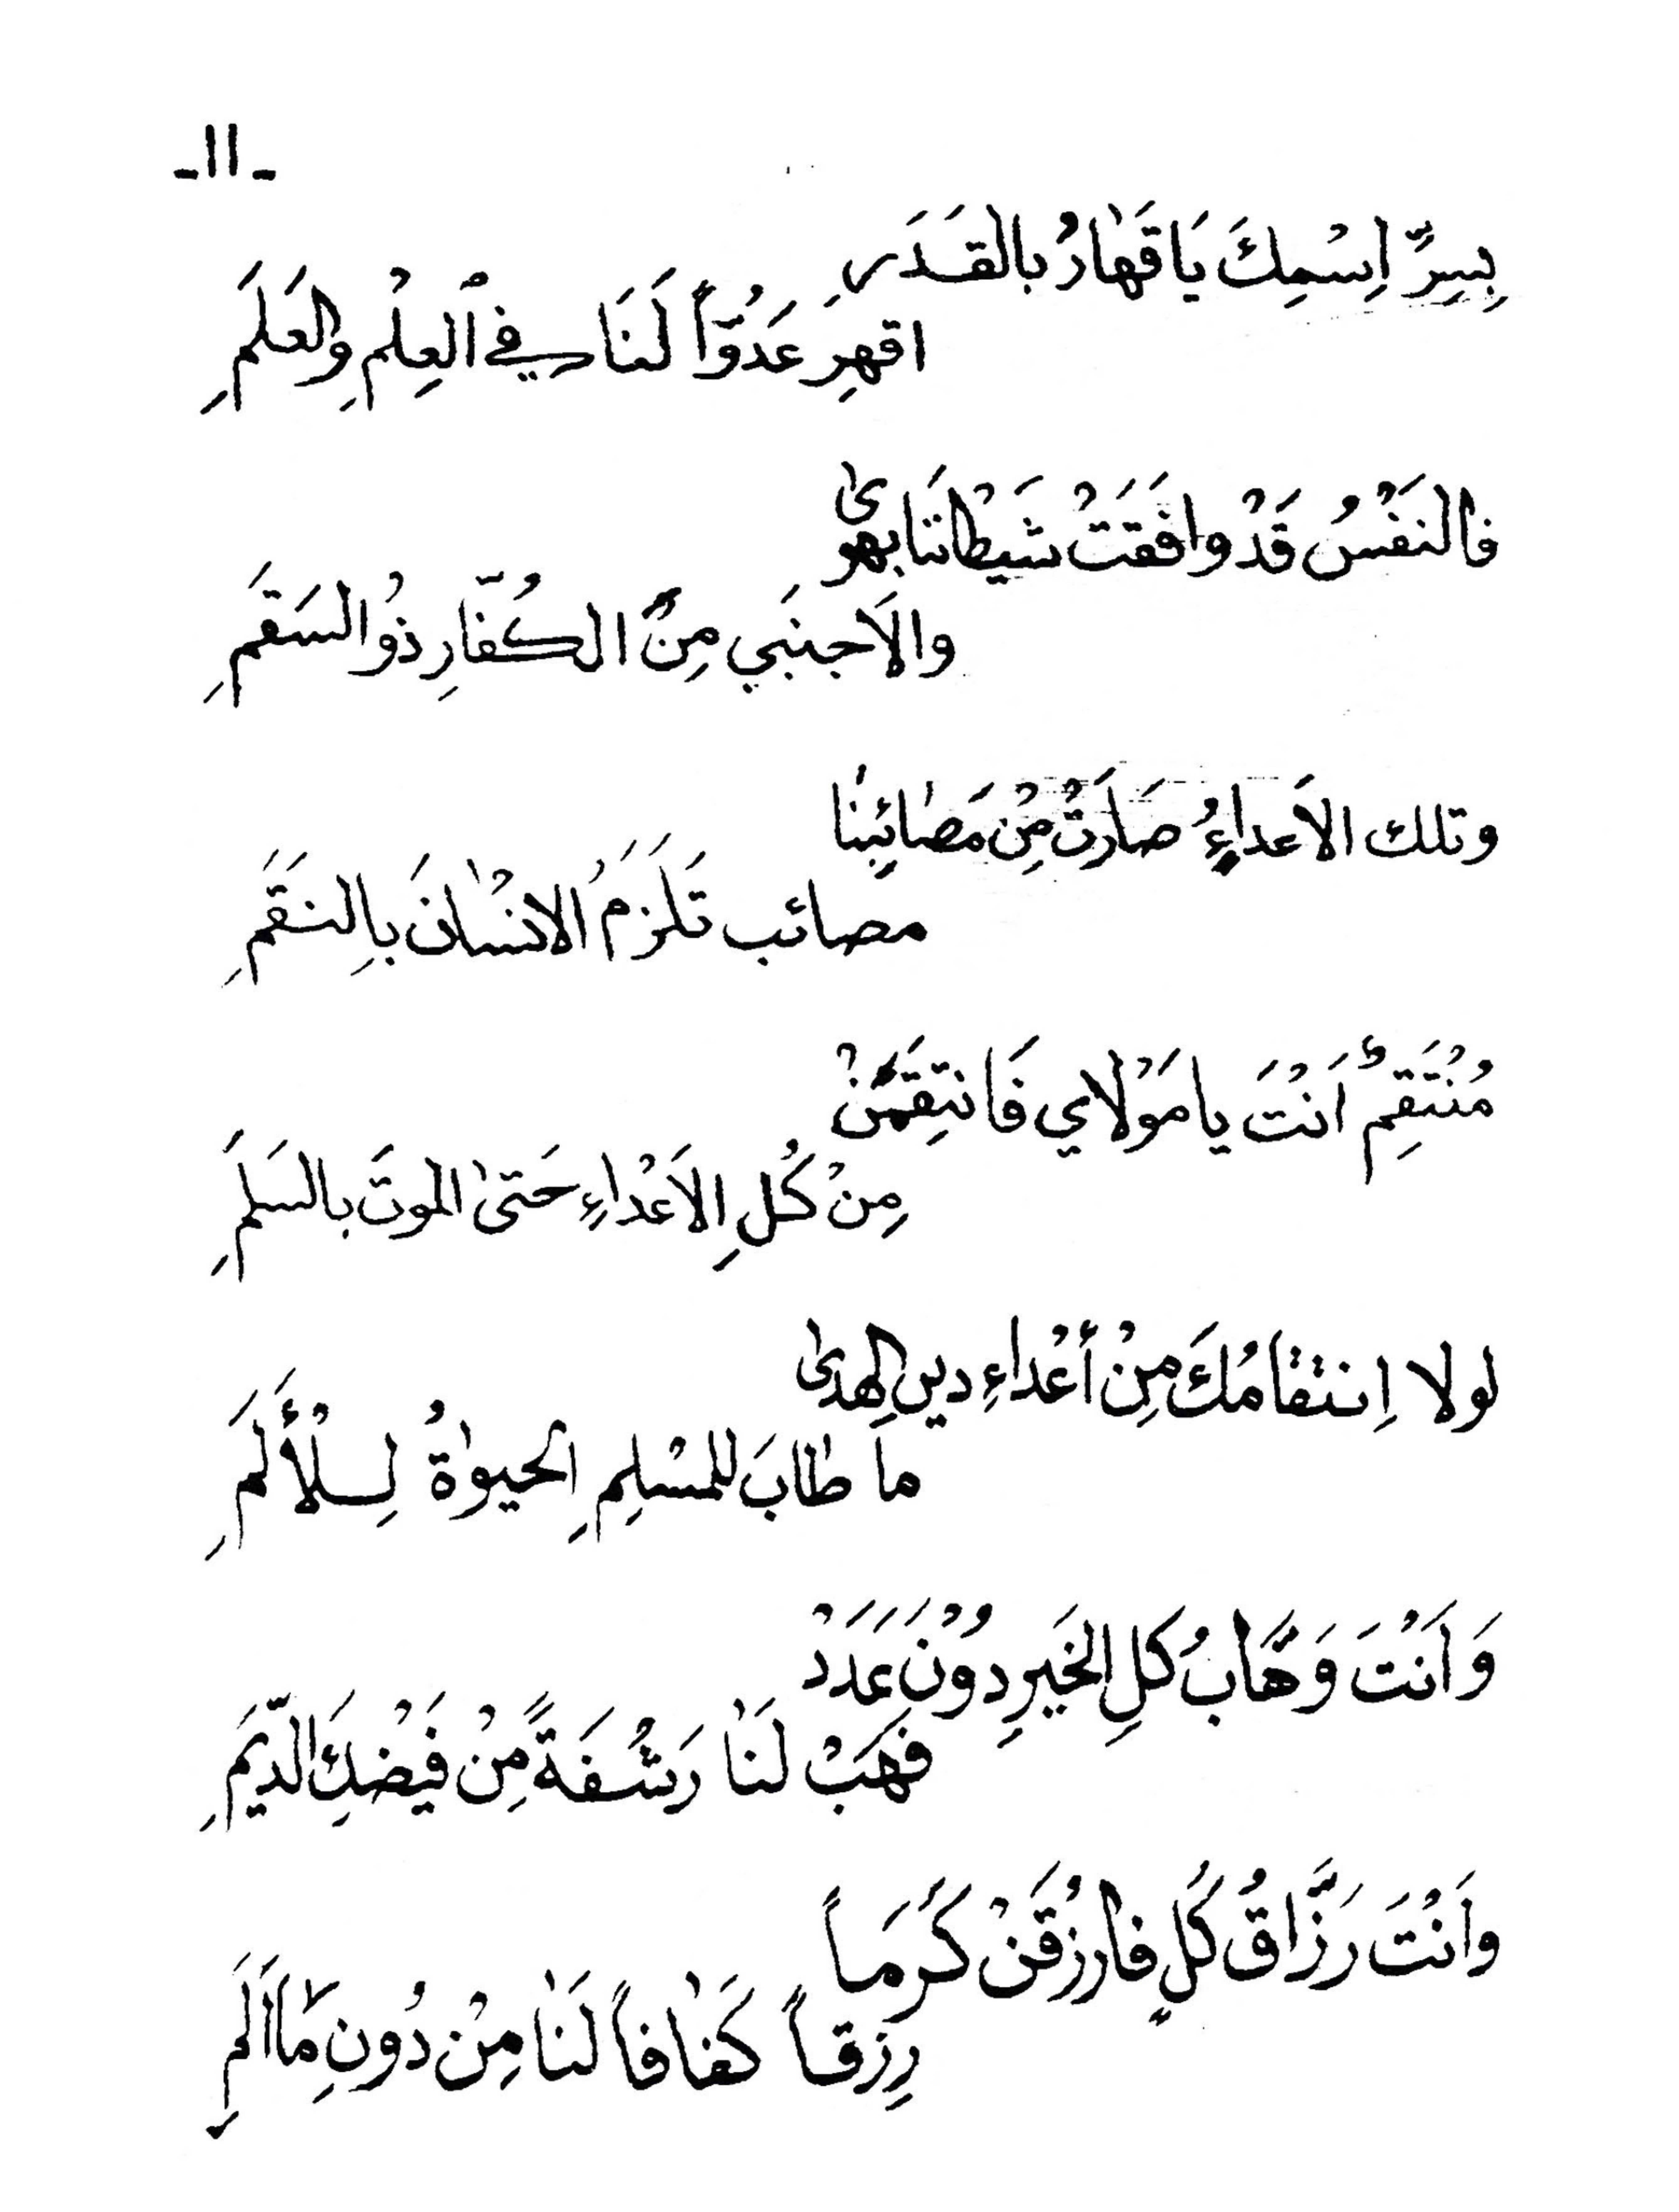 -١١-
بِسِرِّ اِسْمِكَ يَا قَهَارُ بالقَدَرِ
اقهِرِ عَدُوّاً لَنَا فِي الْعِلْمِ وِالعَلَمِ
فالنَفْسُ قَدْ وافَقَتْ شَيْطانَنا بهوىٰ
والاَجنَبي مِنَ الكُفّارِ ذوُ السَقَمِ
وتلك الاَعداءِ صَارَتْ مِنْ مَصٰايِبِنٰا
مصائب تَلزَمَ الانسْٰانَ بِالنَقَمِ
مُنْتَقِمٌ اَنْتَ يا مَوْلاي فَانتِقمَنْ
مِنْ كُلِ الاَعْداءِ حَتىٰ الموتَ بالسَلَمِ
لولا اِنتقامُكَ مِنْ أعْداءِ دينِ الهدىٰ
ما طابَ للمسْلِمِ الحيوٰةُ لِسلْأَلَمِ
وَاَنْتَ وَهَّابُ كلِ الخَيرِ دوُنَ عَدَدْ
فهَبْ لَنٰا رَشْفَةً مِنْ فَيْضِكَ الدّيَمِ
واَنْتَ رَزَّاقُ كُلٍ فارزُقَنْ كَرَمَاً
رِزقاً كَفٰافاً لَنٰا مِنْ دُونِ مٰا اَلَمٍ